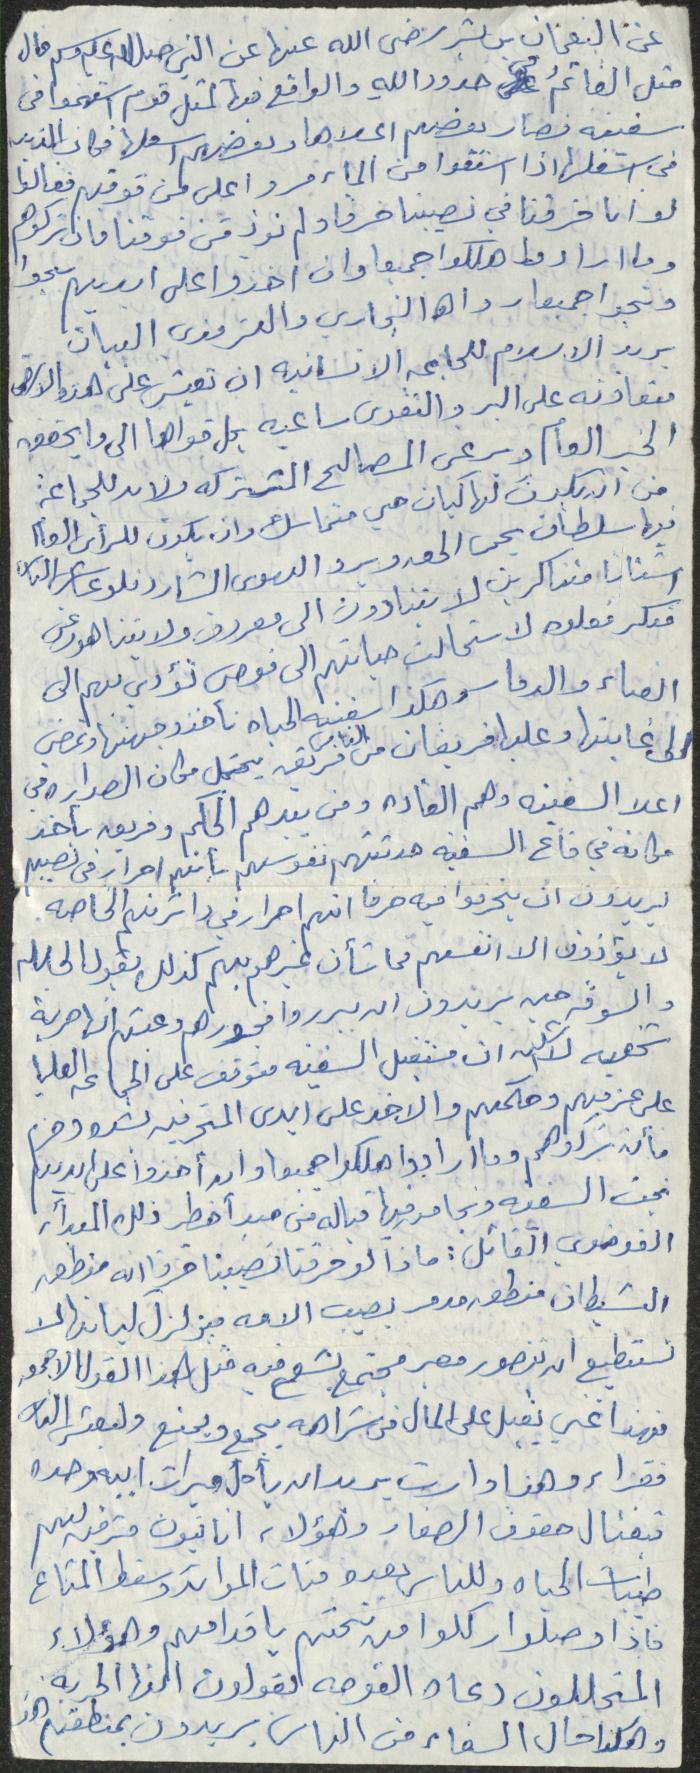 عن النعمان بن بشير رضى الله عنهما عن النبي صلى الله عليه وسلم قال
مثل القائم في حدود الله والواقع فيها كمثل قوم استهموا في
سفينه فصار بعضهم اعلاها وبعضهم اسفلها فكان الذين
في اسفلها اذا استقوا من الماء مروا على من فوقهم فقالوا
لو أنا خرقنا في نصيبنا خرقا ولم نوذ من فوقنا فان تركوهم
وما ارادوا هلكوا جميعا وان اخذوا على ايديهم نجوا
ونجوا جميعا رواه البخاري والترمذى البيان
يريد الاسلام للجماعه الانسانيه ان تعيش على هذه الارض
متعاونه على البر والتقوى ساعيه بكل قواها الى ما يحقق
الخير العام ويرعى المصالح المشتركه ولابد للجماعة
من ان يكون لها كيان حي متماسك وان يكون للرأى العام
فيها سلطان يحمى الحق ويرد الهوى الشارد فلو عاش الناس
اشتاتا متناكرين لا يتنادون الى معروف ولا يتناهون عن
منكر فعلوه لاستحالت حياتهم الى فوضى تؤدي بهم الى
الفناء والدمار وهكذا سفينه الحياه تأخذ وجهتها وتمضى
الى غايتها وعليها فريقان من الناس فريق يحتل مكان الصداره في
اعلا السفينه وهم القاده ومن بيدهم الحكم وفريق يأخذ
مكانه في قاع السفينه حدثتهم نفوسهم بأنهم احرار في نصيبهم
يريدون ان يخرقوا فيه خرقا انهم احرار في دائرتهم الخاصه
لا يؤذون الا انفسهم فما شأن غيرهم بهم كذلك يقول الجهله
والسوقه حين يريدون ان يبرروا فجورهم وعبثهم انها حرية
شخصيه لاشك ان مستقبل السفينه متوقف على الجماعه العليا
على عزمهم وحكمتهم والاخذ على ايدى المنحرفين بشده وحزم
فأن تركوهم وما ارادوا هلكوا جميعا وان أخذوا على ايديهم
نجت السفينه ونجا من فيها فياله من مبدأ خطر ذلك المبدأ
الفوضوي القائل: ماذا لو خرقنا نصيبنا خرقا انه منطق
الشيطان منطق مدمر يصيب الامه فيزلزل كيانها الا
تستطيع ان تتصور مصير مجتمع يشيع فيه مثل هذا القول الاحمق
فهذا غني يقبل على المال في شراهه يجمع ويمنع وليعش الناس
فقراء وهذا وارث يريد ان يأكل ميراث ابيه وحده
فيغتال حقوق الصغار وهؤلاء انانيون مترفين لهم
طيبات الحياه وللناس بعده فتات الموائد وسقط المتاع
فاذا وصلوا ركلوا من تحتهم باقدامهم وهؤلاء
المتحللون دعاه الفوضه يقولون انها الحريه
وهكذا حال السفهاء من الناس يريدون بمنطقهم هذا